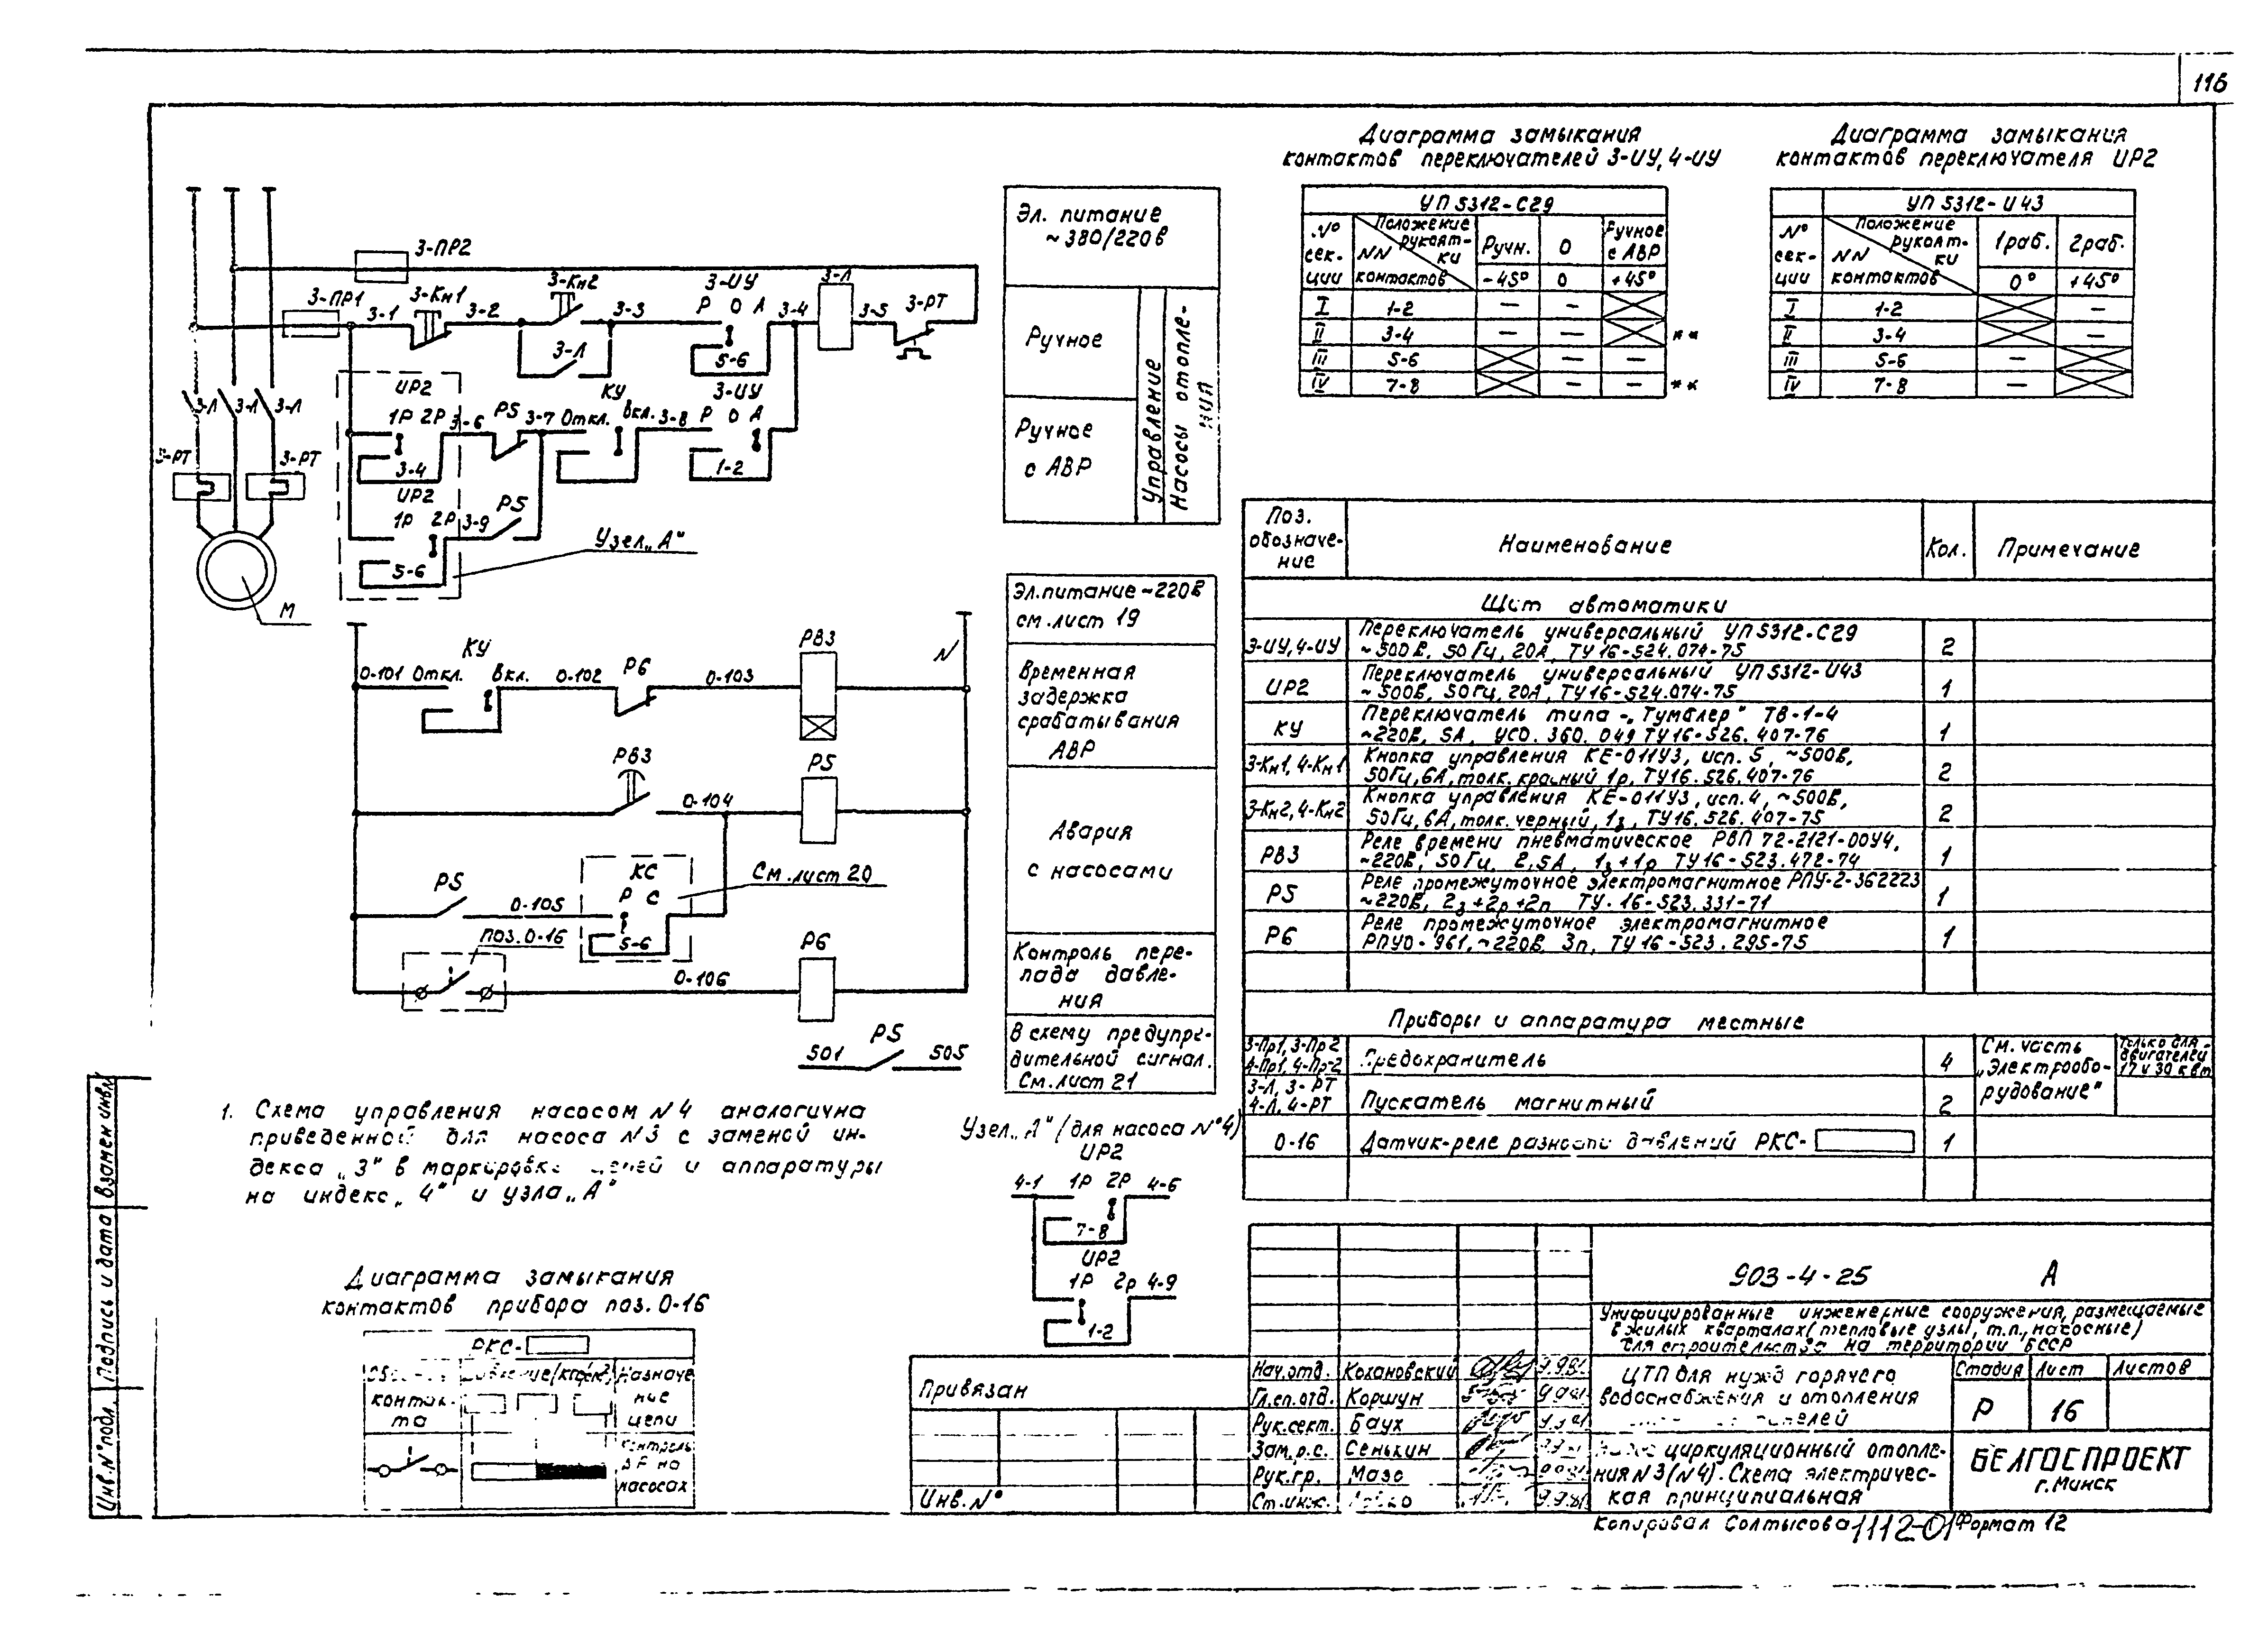 116
Диаграмма замыкания
контактов переключателей 3-ИУ, 4-ИУ
УП 5312-С29
№ сек- ции
Положение рукоят- ки
NN контактов
Ручн.
0
Ручное с АВР
-45°
0
+45°
I 1-2 — —
II 3-4 — — **
III 5-6 — —
IV 7-8 — — **
Диаграмма замыкания
контактов переключателя ИР2
УП 5312-И43
№ сек- ции
Положение рукоят- ки
NN контактов
1раб.
2раб.
0°
+45°
I 1-2 —
II 3-4 —
III 5-6 —
IV 7-8 —
3-ПР2
3-ПР1
3-1
3-Кн1
3-2
3-Кн2
3-3
3-Л
3-ИУ
Р О А
5-6
3-4
3-Л
3-5
3-РТ
3-Л 3-Л 3-Л
3-РТ
3-РТ
М
ИР2
1Р 2Р
3-4
3-6
Р5
3-7
КУ
Откл. Вкл.
3-8
3-ИУ
Р О А
1-2
ИР2
1Р 2Р
5-6
3-9
Р5
Узел „А"
Эл. питание
~380/220в
Ручное
Ручное
с АВР
Управление
Насосы отопле-
ния
0-101
КУ
Откл. Вкл.
0-102
Р6
0-103
РВ3
N
РВ3
0-104
Р5
Р5
0-105
КС
Р С
5-6
См. лист 20
поз. 0-16
0-106
Р6
501
Р5
505
Эл. питание ~220В
см. лист 19
Временная
задержка
срабатывания
АВР
Авария
с насосами
Контроль пере-
пада давле-
ния
В схему предупре-
дительной сигнал.
См. лист 21
1. Схема управления насосом N4 аналогична
приведенной для насоса N3 с заменой ин-
декса „3" в маркировке цепей и аппаратуры
на индекс „4" и узла „А"
Узел „А" (для насоса №4)
ИР2
4-1
1Р 2Р
4-6
7-8
ИР2
1Р 2Р
4-9
1-2
Диаграмма замыкания
контактов прибора поз. 0-16
РКС-
контак-
та
Назначе
ние
цепи
Контроль
ΔР на
насосах
Поз. обозначе- ние
Наименование
Кол.
Примечание
Щит автоматики
3-ИУ, 4-ИУ
Переключатель универсальный УП 5312-С29
~500В, 50Гц, 20А, ТУ 16-524.074-75
2
ИР2
Переключатель универсальный УП 5312-И43
~500В, 50Гц, 20А, ТУ 16-524.074-75
1
КУ
Переключатель типа „Тумблер" ТВ-1-4
~220В, 5А, УСО.360.049 ТУ 16-526.407-76
1
3-Кн1, 4-Кн1
Кнопка управления КЕ-011У3, исп. 5, ~500В,
50Гц, 6А, толк. красный, 1р, ТУ16.526.407-76
2
3-Кн2, 4-Кн2
Кнопка управления КЕ-011У3, исп. 4, ~500В,
50Гц, 6А, толк. черный, 1з, ТУ16.526.407-75
2
РВ3
Реле времени пневматическое РВП 72-2121-00У4,
~220В, 50Гц, 2,5А, 1з+1р ТУ16-523.472-74
1
Р5
Реле промежуточное электромагнитное РПУ-2-362223
~220В, 2з+2р+2п ТУ.16-523.331-71
1
Р6
Реле промежуточное электромагнитное
РПУ0-961, ~220В 3п, ТУ16-523.295-75
1
Приборы и аппаратура местные
3-Пр1, 3-Пр2
4-Пр1, 4-Пр2
Предохранитель
4
См. часть
„Электрообо-
рудование"
Только для
двигателей
17 и 30 квт
3-Л, 3-РТ
4-Л, 4-РТ
Пускатель магнитный
2
0-16
Датчик-реле разности давлений РКС-
1
903-4-25 А
Унифицированные инженерные сооружения, размещаемые
в жилых кварталах (тепловые узлы, т.п., насосные)
для строительства на территории БССР
Нач.отд. Кохановский
Гл.сп.отд. Коршун
Рук.сект. Баух
Зам.р.с. Сенькин
Рук.гр. Мазо
Ст.инж.
ЦТП для нужд горячего
водоснабжения и отопления
Стадия Лист Листов
Р 16
циркуляционный отопле-
ния N3(N4). Схема электричес-
кая принципиальная
БЕЛГОСПРОЕКТ
г. Минск
Привязан
Инв. №
Копировал Солтысова 1112-01 Формат 12
Инв. № подл.
Подпись и дата
Взамен инв.№